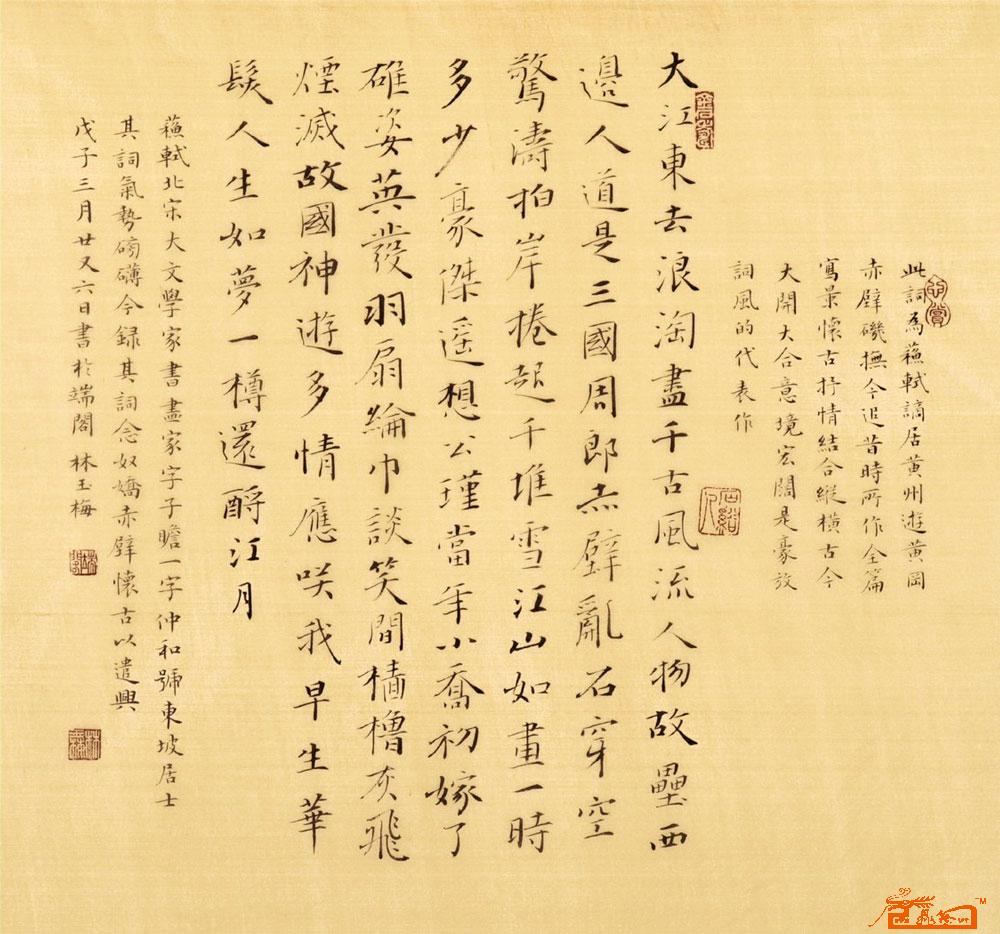 此詞為蘇軾謫居黄州遊黄岡
赤壁磯撫今追昔時所作全篇
寫景懷古抒情結合縱横古今
大開大合意境宏闊是豪放
詞風的代表作
大江東去浪淘盡千古風流人物故壘西
邊人道是三國周郎赤壁亂石穿空
驚濤拍岸捲起千堆雪江山如畫一時
多少豪傑遥想公瑾當年小喬初嫁了
雄姿英發羽扇綸巾談笑間檣櫓灰飛
煙滅故國神遊多情應咲我早生華
髮人生如夢一樽還酹江月
蘇軾北宋大文學家書畫家字子瞻一字仲和號東坡居士
其詞氣勢磅礴今録其詞念奴嬌赤壁懷古以遣興
戊子三月廿又六日書於端閣 林玉梅